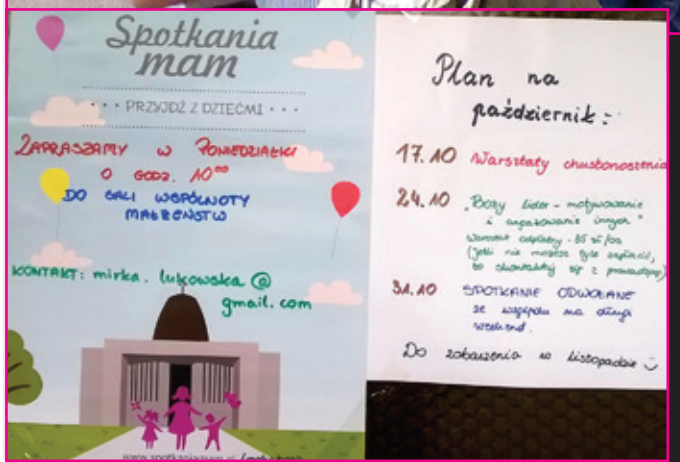 Spotkania
mam
PRZYJDŹ Z DZIEĆMI
ZAPRASZAMY W PONIEDZIAŁKI
O GODZ. 10⁰⁰
DO SALI WSPÓLNOTY
MAŁŻEŃSTW
KONTAKT: mirka. lukowska @
gmail. com
Plan na
październik:
17.10 Warsztaty chustonoszenia
24.10 „Boży lider - motywowanie
i angażowanie innych"
warsztat odpłatny - 35 zł/os
(jeśli nie możesz tyle zapłacić,
to skontaktuj się z prowadzącą)
31.10 SPOTKANIE ODWOŁANE
ze względu na długi
weekend.
Do zobaczenia w listopadzie